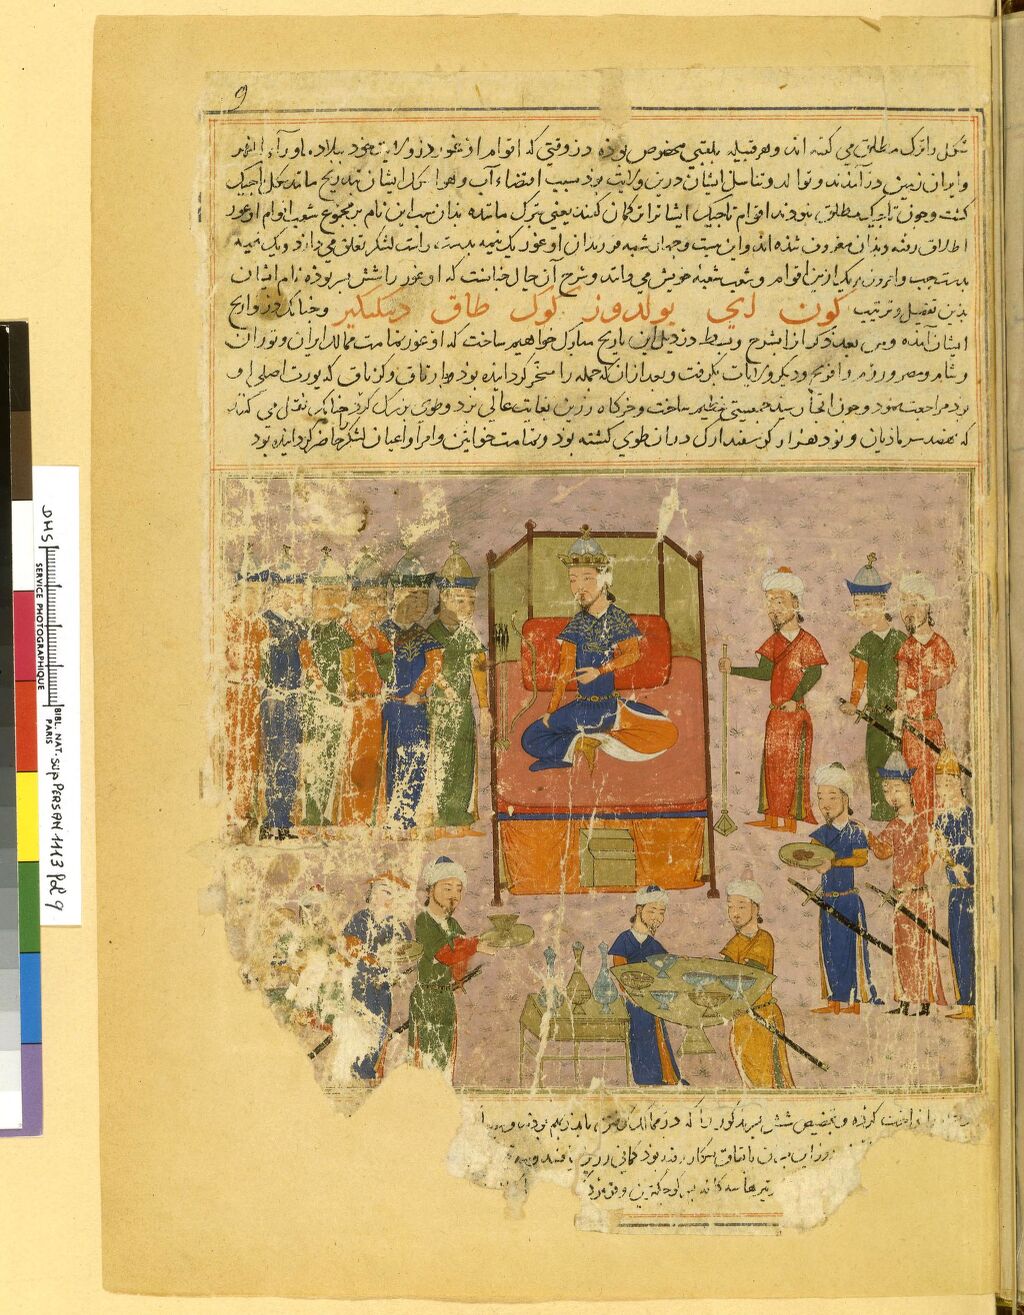 9
شکل را ترک مطلق می گفته اند و هر قبیله بلقبی مخصوص بوده در وقتی که اقوام اوغور از ولایت خود ببلاد ماورآء النهر
و ایران زمین درآمدند و توالد و تناسل ایشان درین ولایت بود بسبب اقتضاء آب و هوا شکل ایشان بتدریج مانند شکل تاجیک
گشت و چون تاجیک مطلق نبودند اقوام تاجیک ایشانرا ترکمان گفتند یعنی ترک مانند بدان سبب این نام بر مجموع شعب اقوام اوغور
اطلاق رفته و بدان معروف شده اند و این بیست و چهار شعبه فرزندان اوغور یک نیمه بدست راست لشکر تعلق می دارد و یک نیمه
بدست چپ و اکنون هر یکی ازین اقوام و شعب شعبهٔ خویش می دانند و شرح آن حال چنانست که اوغور را شش پسر بوده نام ایشان
بدین تفصیل و ترتیب کون آی یولدوز کوک طاق دینکیز و چنانک در تواریخ
ایشان آمده و من بعد ذکر آن بشرح و بسط در ذیل این تاریخ مبارک خواهیم ساخت که اوغور تمامت ممالک ایران و توران
و شام و مصر و روم و افرنج و دیگر ولایات بگرفت و بعد از آن که جمله را مسخر گردانیده بود با اورتاق و کزتاق که یورت اصلی او
بود مراجعت نمود و چون آنجا رسید جمعیتی عظیم ساخت و خرگاه زرین بغایت عالی بزد و طوی بزرک کرد چنانک نقل می کنند
که نهصد سر مادیان و نود هزار گوسفند ارکک در آن طوی کشته بود و تمامت خواتین و امرا و اعیان لشکر حاضر گردانیده بود
را نواخت کرده و بتخصیص شش پسر مذکور را که در ممالک
DMS
SERVICE PHOTOGRAPHIQUE
BIBL. NAT. PARIS
sup PERSAN 1113 fol 9